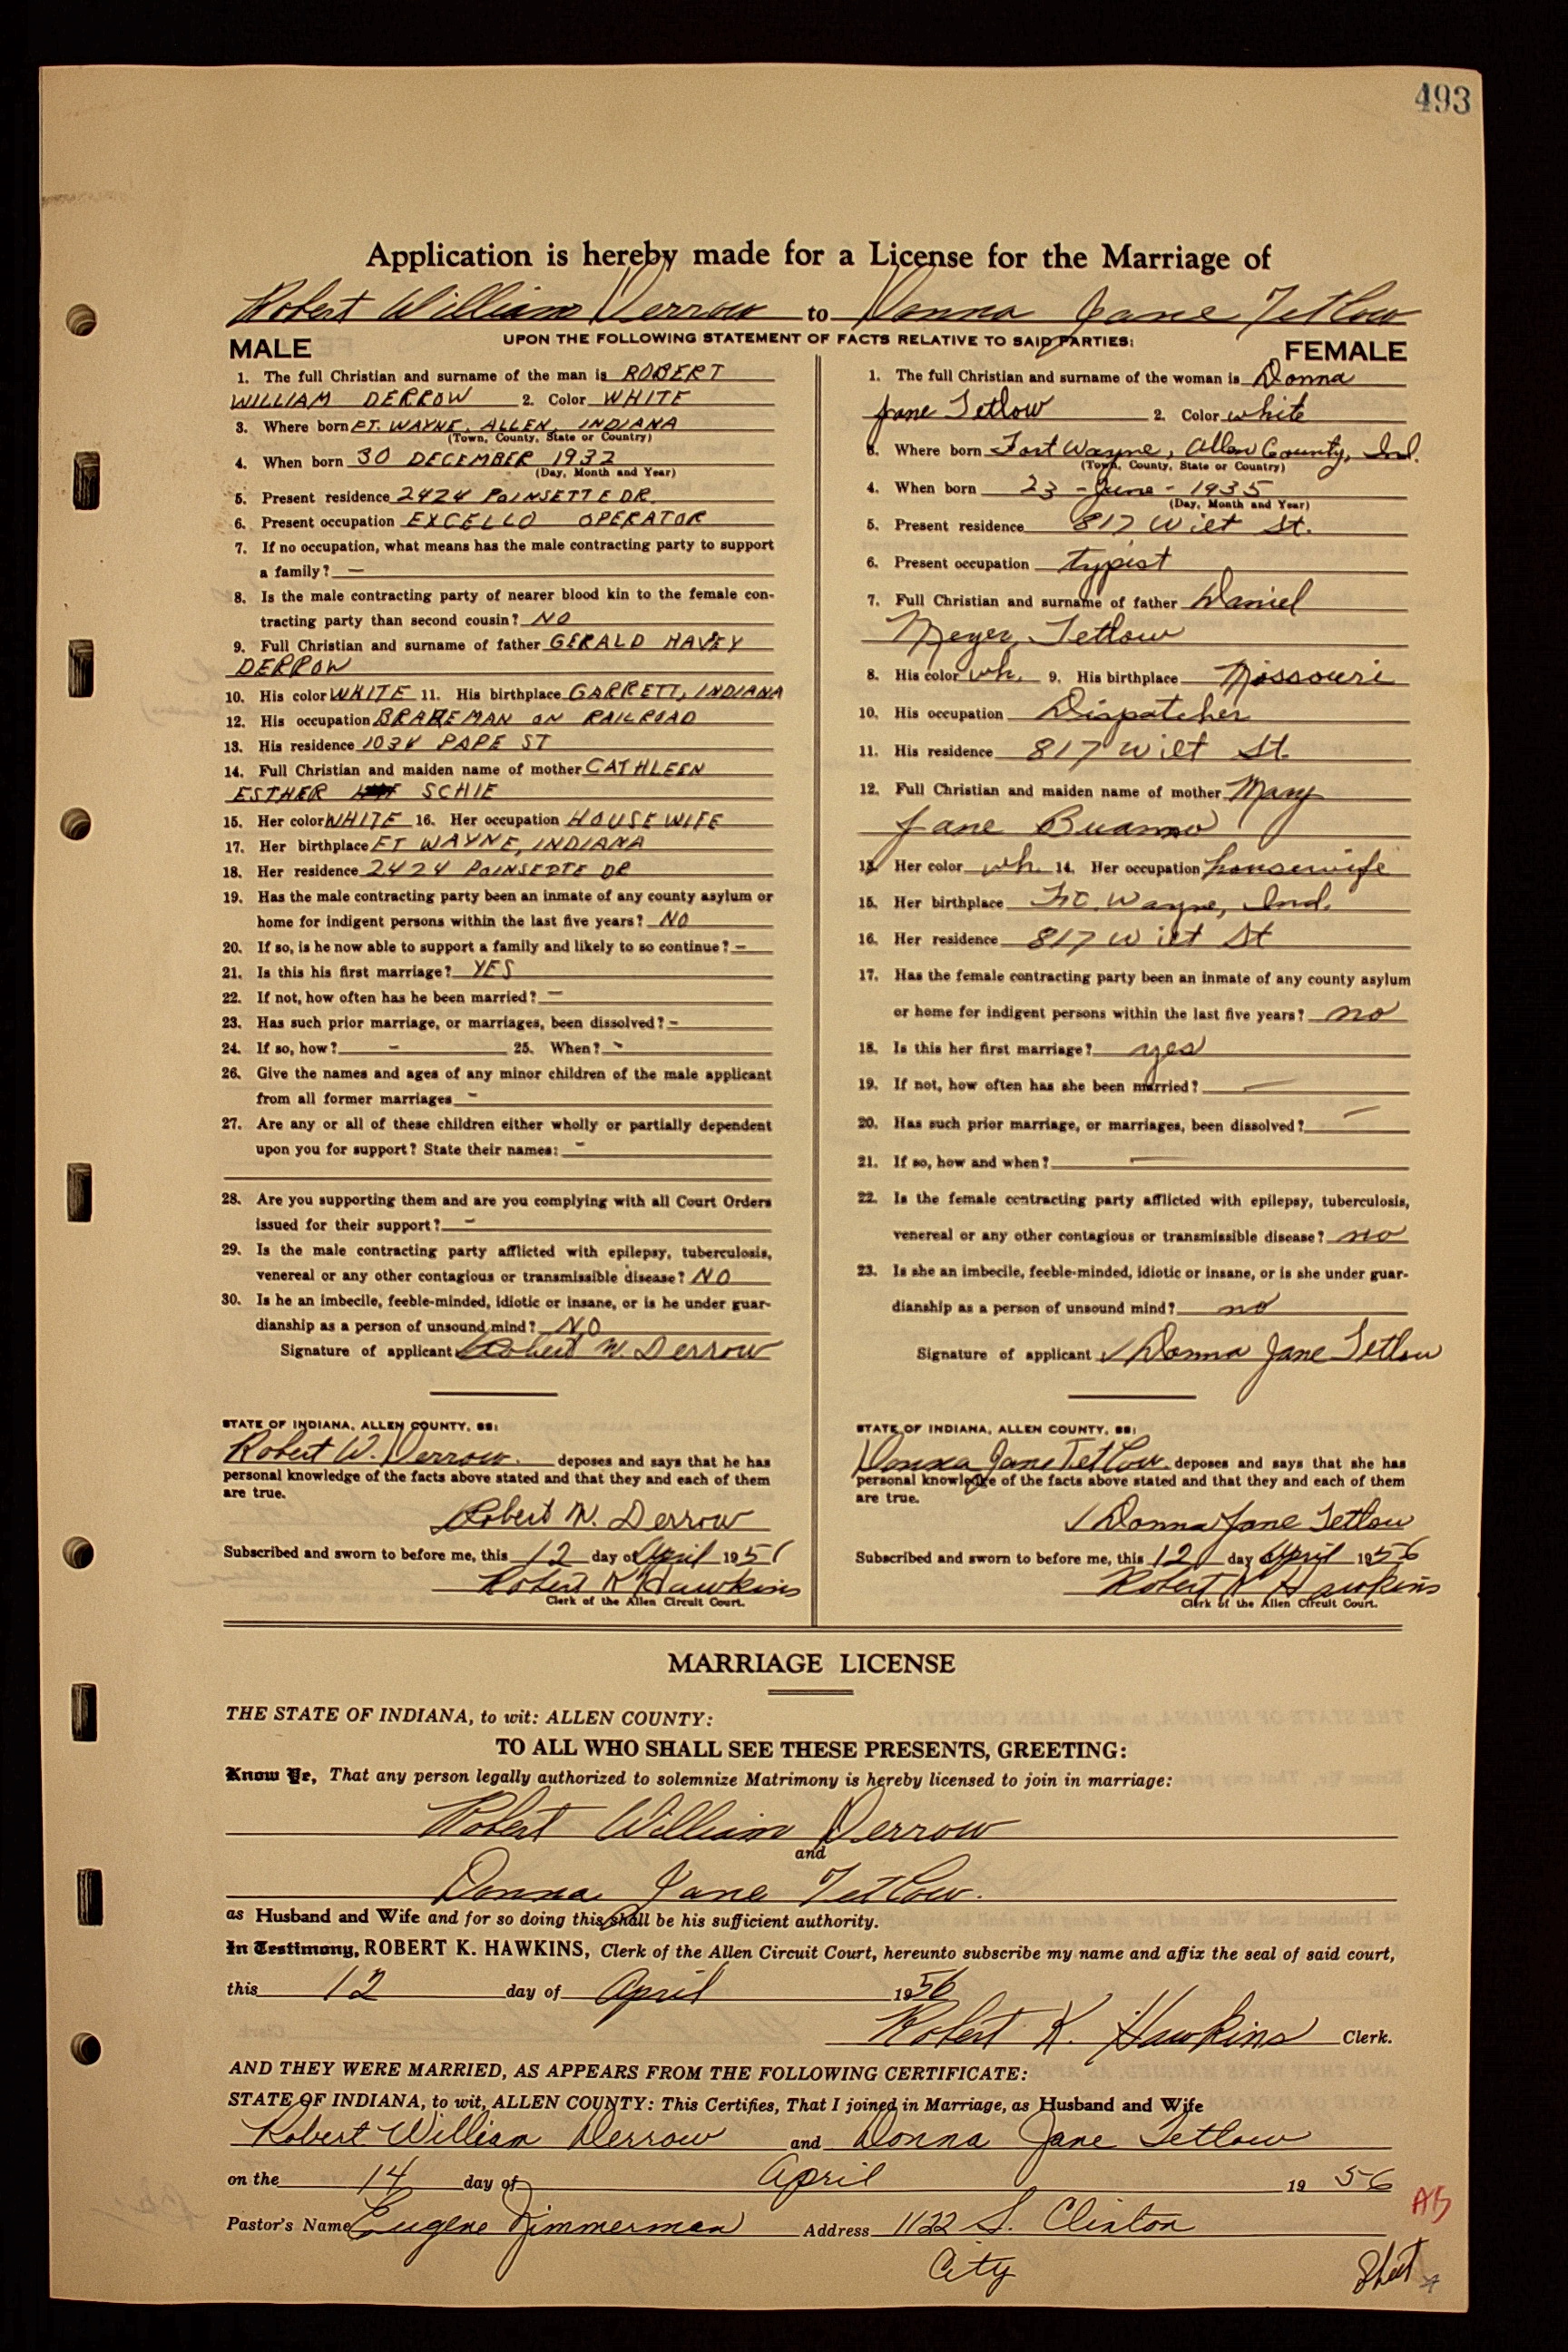 493
Application is hereby made for a License for the Marriage of
Robert William Derrow to Donna Jane Tetlow
UPON THE FOLLOWING STATEMENT OF FACTS RELATIVE TO SAID PARTIES:
MALE
1. The full Christian and surname of the man is ROBERT
WILLIAM DERROW 2. Color WHITE
3. Where born FT. WAYNE, ALLEN, INDIANA
(Town, County, State or Country)
4. When born 30 DECEMBER 1932
(Day, Month and Year)
5. Present residence 2424 POINSETTE DR.
6. Present occupation EXCELLO OPERATOR
7. If no occupation, what means has the male contracting party to support
a family? —
8. Is the male contracting party of nearer blood kin to the female con-
tracting party than second cousin? NO
9. Full Christian and surname of father GERALD
DERROW
10. His color WHITE 11. His birthplace GARRETT, INDIANA
12. His occupation BRAKEMAN ON RAILROAD
13. His residence PAPE ST
14. Full Christian and maiden name of mother CATHLEEN
ESTHER SCHIE
15. Her color WHITE 16. Her occupation HOUSEWIFE
17. Her birthplace FT WAYNE, INDIANA
18. Her residence 2424 POINSETTE DR
19. Has the male contracting party been an inmate of any county asylum or
home for indigent persons within the last five years? NO
20. If so, is he now able to support a family and likely to so continue? —
21. Is this his first marriage? YES
22. If not, how often has he been married? —
23. Has such prior marriage, or marriages, been dissolved? -
24. If so, how? - 25. When? -
26. Give the names and ages of any minor children of the male applicant
from all former marriages -
27. Are any or all of these children either wholly or partially dependent
upon you for support? State their names: -
28. Are you supporting them and are you complying with all Court Orders
issued for their support? -
29. Is the male contracting party afflicted with epilepsy, tuberculosis,
venereal or any other contagious or transmissible disease? NO
30. Is he an imbecile, feeble-minded, idiotic or insane, or is he under guar-
dianship as a person of unsound mind? NO
Signature of applicant Robert W. Derrow
STATE OF INDIANA, ALLEN COUNTY, SS:
Robert W. Derrow. deposes and says that he has
personal knowledge of the facts above stated and that they and each of them
are true.
Robert W. Derrow
Subscribed and sworn to before me, this 12 day of April 1956
Robert K Hawkins
Clerk of the Allen Circuit Court.
FEMALE
1. The full Christian and surname of the woman is Donna
Jane Tetlow 2. Color white
3. Where born Fort Wayne, Allen County, Ind.
(Town, County, State or Country)
4. When born 23 - June - 1935
(Day, Month and Year)
5. Present residence 817 Wilt St.
6. Present occupation typist
7. Full Christian and surname of father Daniel
Meyer Tetlow
8. His color wh. 9. His birthplace Missouri
10. His occupation Dispatcher
11. His residence 817 Wilt St.
12. Full Christian and maiden name of mother Mary
Jane
13. Her color wh. 14. Her occupation housewife
15. Her birthplace Ft. Wayne, Ind.
16. Her residence 817 Wilt St
17. Has the female contracting party been an inmate of any county asylum
or home for indigent persons within the last five years? no
18. Is this her first marriage? yes
19. If not, how often has she been married? —
20. Has such prior marriage, or marriages, been dissolved? —
21. If so, how and when? —
22. Is the female contracting party afflicted with epilepsy, tuberculosis,
venereal or any other contagious or transmissible disease? no
23. Is she an imbecile, feeble-minded, idiotic or insane, or is she under guar-
dianship as a person of unsound mind? no
Signature of applicant ✓ Donna Jane Tetlow
STATE OF INDIANA, ALLEN COUNTY, SS:
Donna Jane Tetlow. deposes and says that she has
personal knowledge of the facts above stated and that they and each of them
are true.
✓ Donna Jane Tetlow
Subscribed and sworn to before me, this 12 day April 1956
Robert K Hawkins
Clerk of the Allen Circuit Court.
MARRIAGE LICENSE
THE STATE OF INDIANA, to wit: ALLEN COUNTY:
TO ALL WHO SHALL SEE THESE PRESENTS, GREETING:
Know Ye, That any person legally authorized to solemnize Matrimony is hereby licensed to join in marriage:
Robert William Derrow
and
Donna Jane Tetlow.
as Husband and Wife and for so doing this shall be his sufficient authority.
In Testimony, ROBERT K. HAWKINS, Clerk of the Allen Circuit Court, hereunto subscribe my name and affix the seal of said court,
this 12 day of April 1956
Robert K. Hawkins Clerk.
AND THEY WERE MARRIED, AS APPEARS FROM THE FOLLOWING CERTIFICATE:
STATE OF INDIANA, to wit, ALLEN COUNTY: This Certifies, That I joined in Marriage, as Husband and Wife
Robert William Derrow and Donna Jane Tetlow
on the 14 day of April 19 56
AB
Pastor's Name Eugene Zimmerman Address 1122 S. Clinton
City